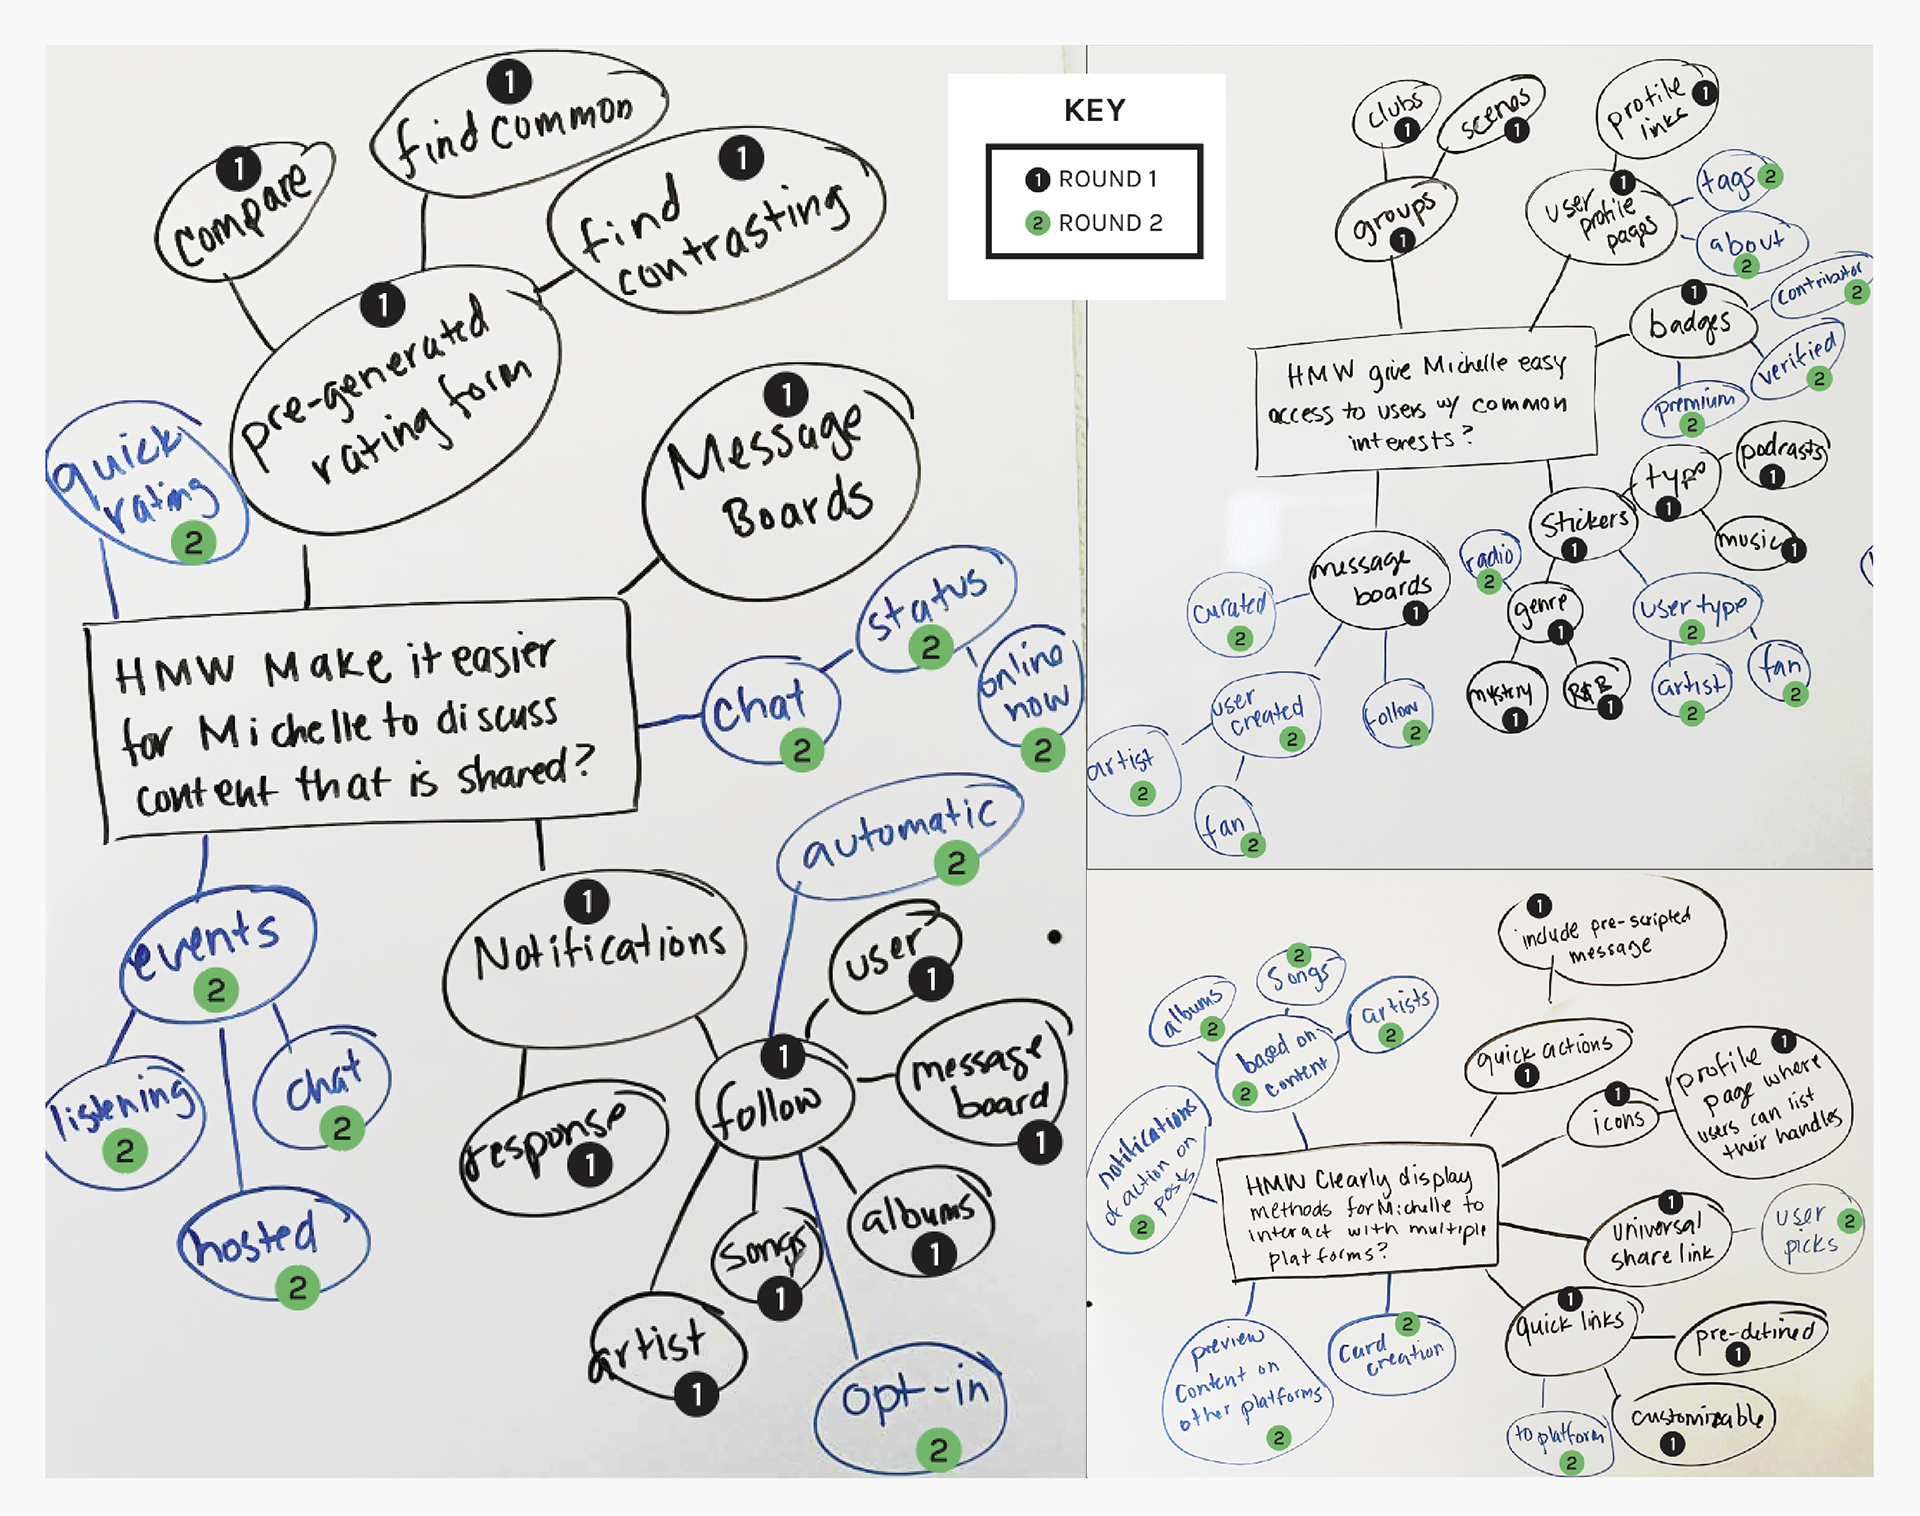 1
find common
1
compare
1
find
contrasting
1
pre-generated
rating form
quick
rating
2
1
Message
Boards
HMW Make it easier
for Michelle to discuss
content that is shared?
chat
2
status
2
online
now
2
events
2
listening
2
chat
2
hosted
2
1
Notifications
response
1
1
follow
automatic
2
user
1
message
board
1
albums
1
songs
1
artist
1
opt-in
2
KEY
1 ROUND 1
2 ROUND 2
clubs
1
scenes
1
groups
1
profile
links
1
1
user
profile
pages
tags 2
about
2
1
badges
contributor
2
verified
2
premium
2
HMW give Michelle easy
access to users w/ common
interests?
type
1
podcasts
1
music 1
Stickers
1
radio
2
genre
1
mystry
1
R&B
1
user type
2
artist
2
fan
2
message
boards
1
curated
2
user
created
2
follow
2
artist
2
fan
2
1
include pre-scripted
message
2
songs
albums
2
artists
2
based on
content
2
notifications
of action on
posts
2
quick actions
1
1
icons
profile 1
page where
users can list
their handles
HMW Clearly display
methods for Michelle to
interact with multiple
platforms?
1
universal
share link
user
picks
2
1
quick links
pre-defined
1
customizable
1
to platform
2
2
card
creation
preview
content on
other platforms
2